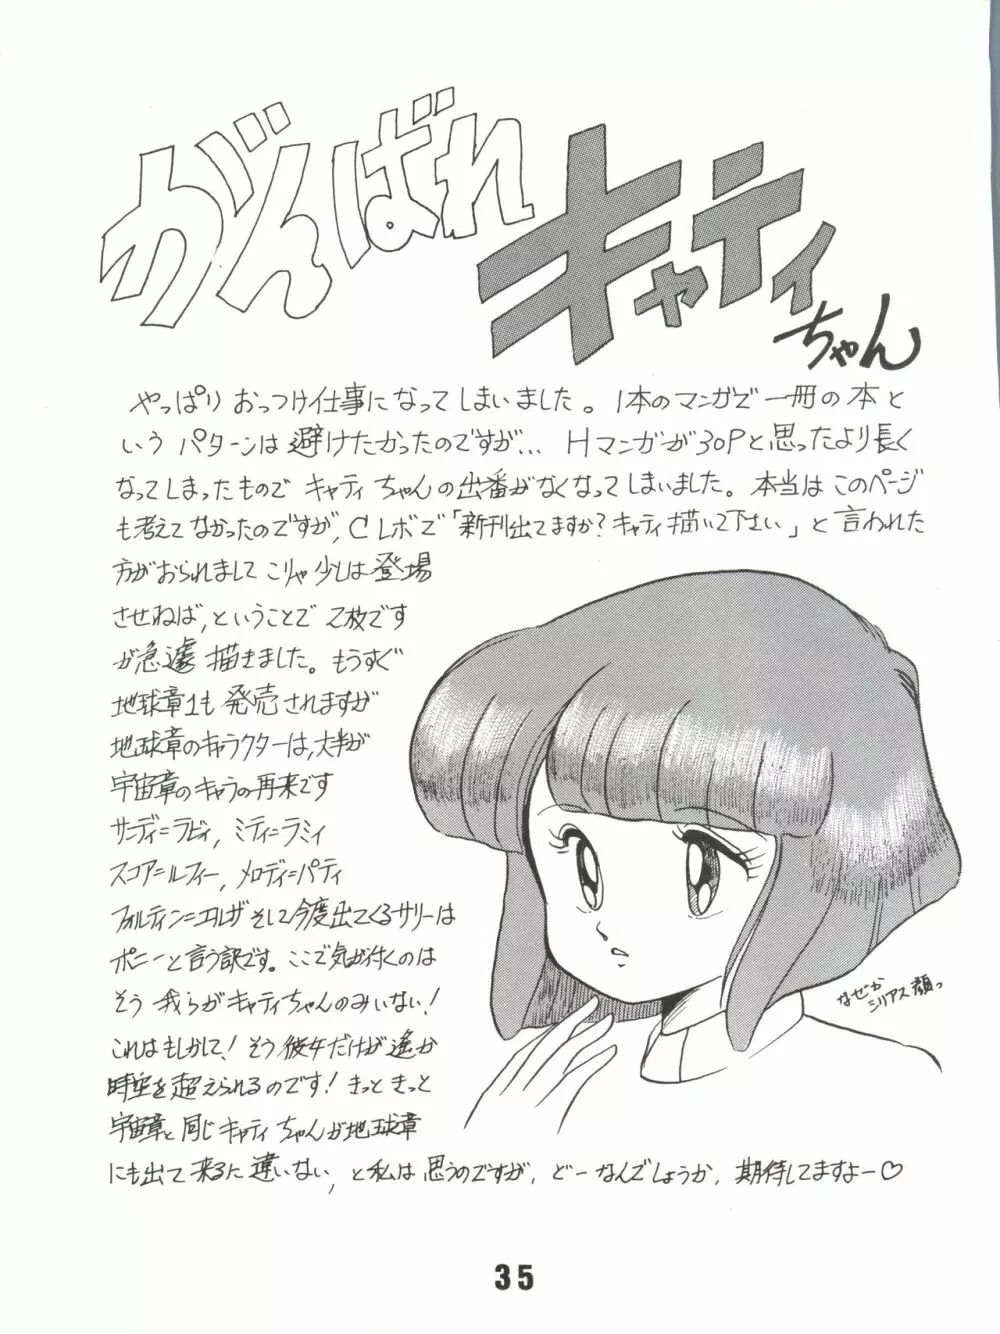 がんばれ
キャティ
ちゃん
やっぱり おっつけ仕事になってしまいました。1本のマンガで一冊の本と
いう パターンは 避けたかったのですが… Hマンガが30Pと思ったより長く
なってしまったもので キャティちゃんの出番がなくなってしまいました。本当は このページ
も考えてなかったのですが, CレボでI「新刊出てますか?キャティ描いて下さい」と言われた
方がおられまして こりゃ少しは登場
させねば, ということで 2枚です
が急遽 描きました。もうすぐ
地球章1も 発売されますが
地球章のキャラクターは, 大半が
宇宙章のキャラの再来です
サンディ=ラビィ, ミティ=ラミィ
スコア=ルフィー, メロディ=パティ
フォルティン=エルザ そして今度出てくるサリーは
ポニーと言う訳です。ここで気が付くのは
そう 我らがキャティちゃんのみいない!
これはもしかして! そう 彼女だけが遙か
時空を超えられるのです! きっと きっと
宇宙章と 同じ キャティちゃんが地球章
にも出て 来るに 違いない, と私は 思うのですが, どーなんでしょうか, 期待してますよー♡
なぜか
シリアス顔っ
35